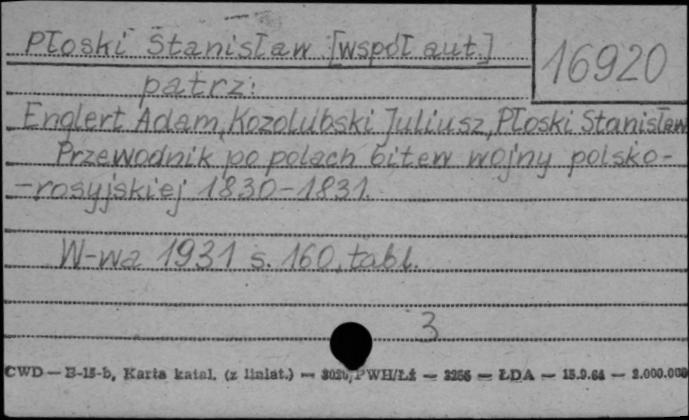 Płoski Stanisław [współ aut.]
16920
patrz:
Englert Adam, Kozolubski Juliusz, Płoski Stanisław
Przewodnik po polach bitew wojny polsko-
-rosyjskiej 1830-1831.
W-wa 1931 s. 160, tabl.
3
CWD — B-15-b, Karta katal. (z liniat.) — PWH/Łź — 3256 — ŁDA — 15.9.64 — 2.000.000